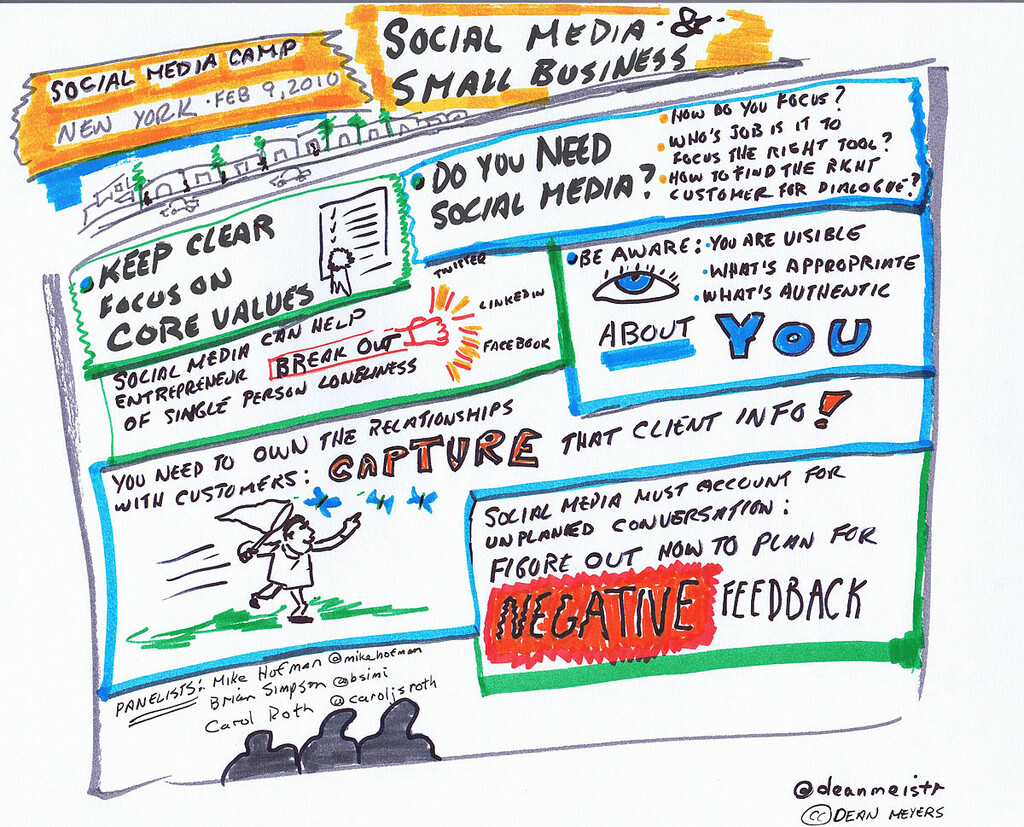 SOCIAL MEDIA CAMP
NEW YORK · FEB 9, 2010
SOCIAL MEDIA &
SMALL BUSINESS
DO YOU NEED
SOCIAL MEDIA?
HOW DO YOU FOCUS?
WHO'S JOB IS IT TO
FOCUS THE RIGHT TOOL?
HOW TO FIND THE RIGHT
CUSTOMER FOR DIALOGUE?
KEEP CLEAR
FOCUS ON
CORE VALUES
SOCIAL MEDIA CAN HELP
ENTREPRENEUR BREAK OUT
OF SINGLE PERSON LONELINESS
TWITTER
LINKEDIN
FACEBOOK
BE AWARE: YOU ARE VISIBLE
WHAT'S APPROPRIATE
WHAT'S AUTHENTIC
ABOUT YOU
YOU NEED TO OWN THE RELATIONSHIPS
WITH CUSTOMERS: CAPTURE THAT CLIENT INFO!
SOCIAL MEDIA MUST ACCOUNT FOR
UNPLANNED CONVERSATION:
FIGURE OUT HOW TO PLAN FOR
NEGATIVE FEEDBACK
PANELISTS: Mike Hofman @mikehofman
Brian Simpson @bsimi
Carol Roth @caroljsroth
@deanmeistr
(cc) DEAN MEYERS